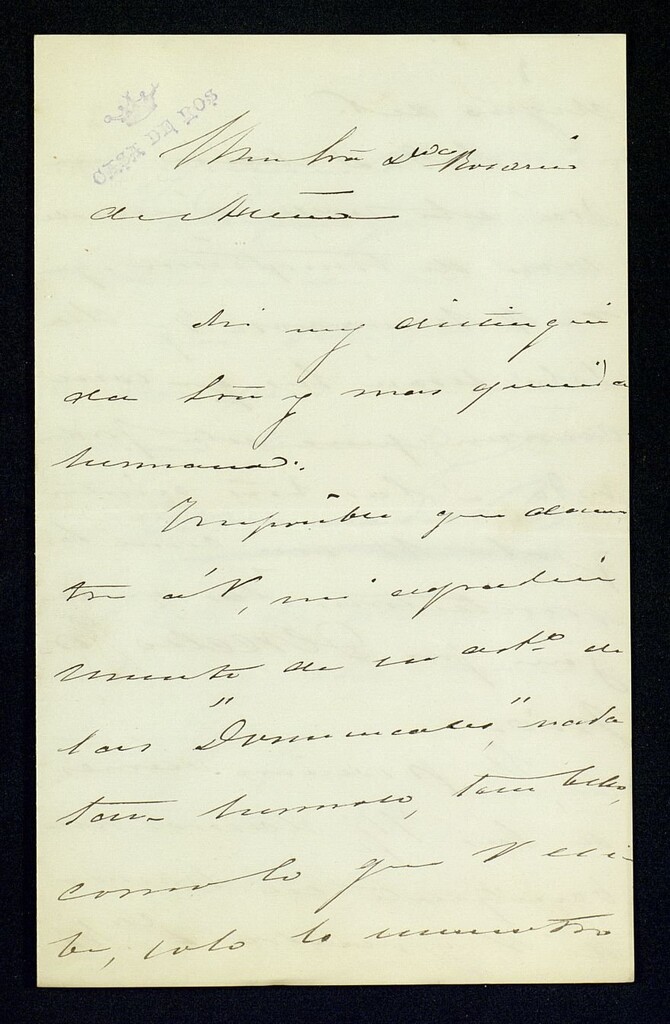 CASA DE LOS
Sra Dña Rosario
de Acuña
Mi muy distingui
da Sra y mas querida
hermana:
Imposible que demues
tre á V, mi agradeci
miento de su arto de
las "Dominicales", nada
tan hermoso, tan bello,
como lo que V escri
be, solo lo